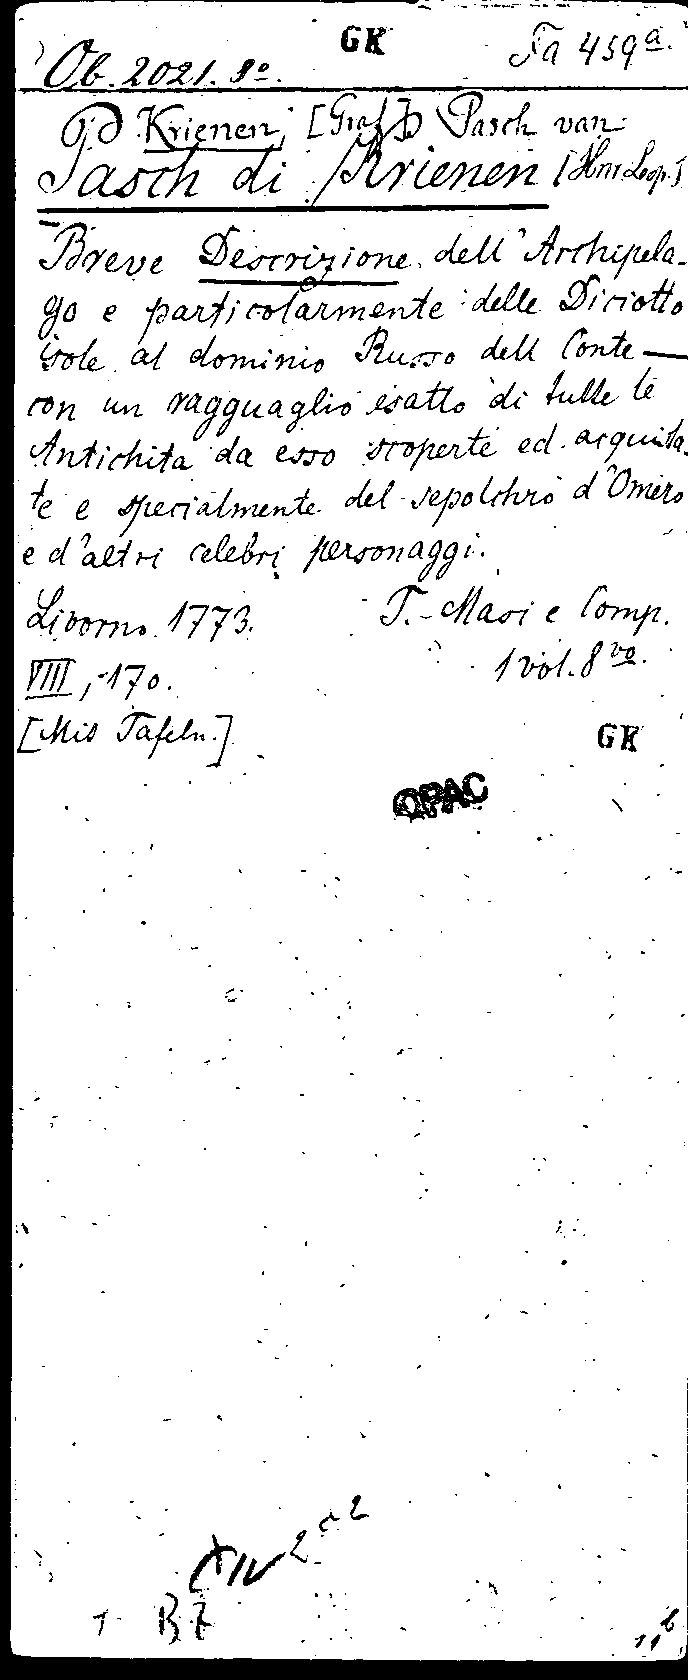 GK
Ob. 2021. 8º. Fa 459a.
Krienen, [Graf] Pasch van
Pasch di Krienen [Hnr. Leop.]
Breve Descrizione dell'Archipela-
go e particolarmente delle Diciotto
isole al dominio Russo dell Conte —
con un ragguaglio esatto di tutte le
Antichita da esso scoperte ed acquista-
te e specialmente del sepolchro d'Omero
e d'altri celebri personaggi.
Livorno 1773. T. Masi e Comp.
VIII, 170. 1 vol. 8vo.
[Mit Tafeln.]
GK
OPAC
B7